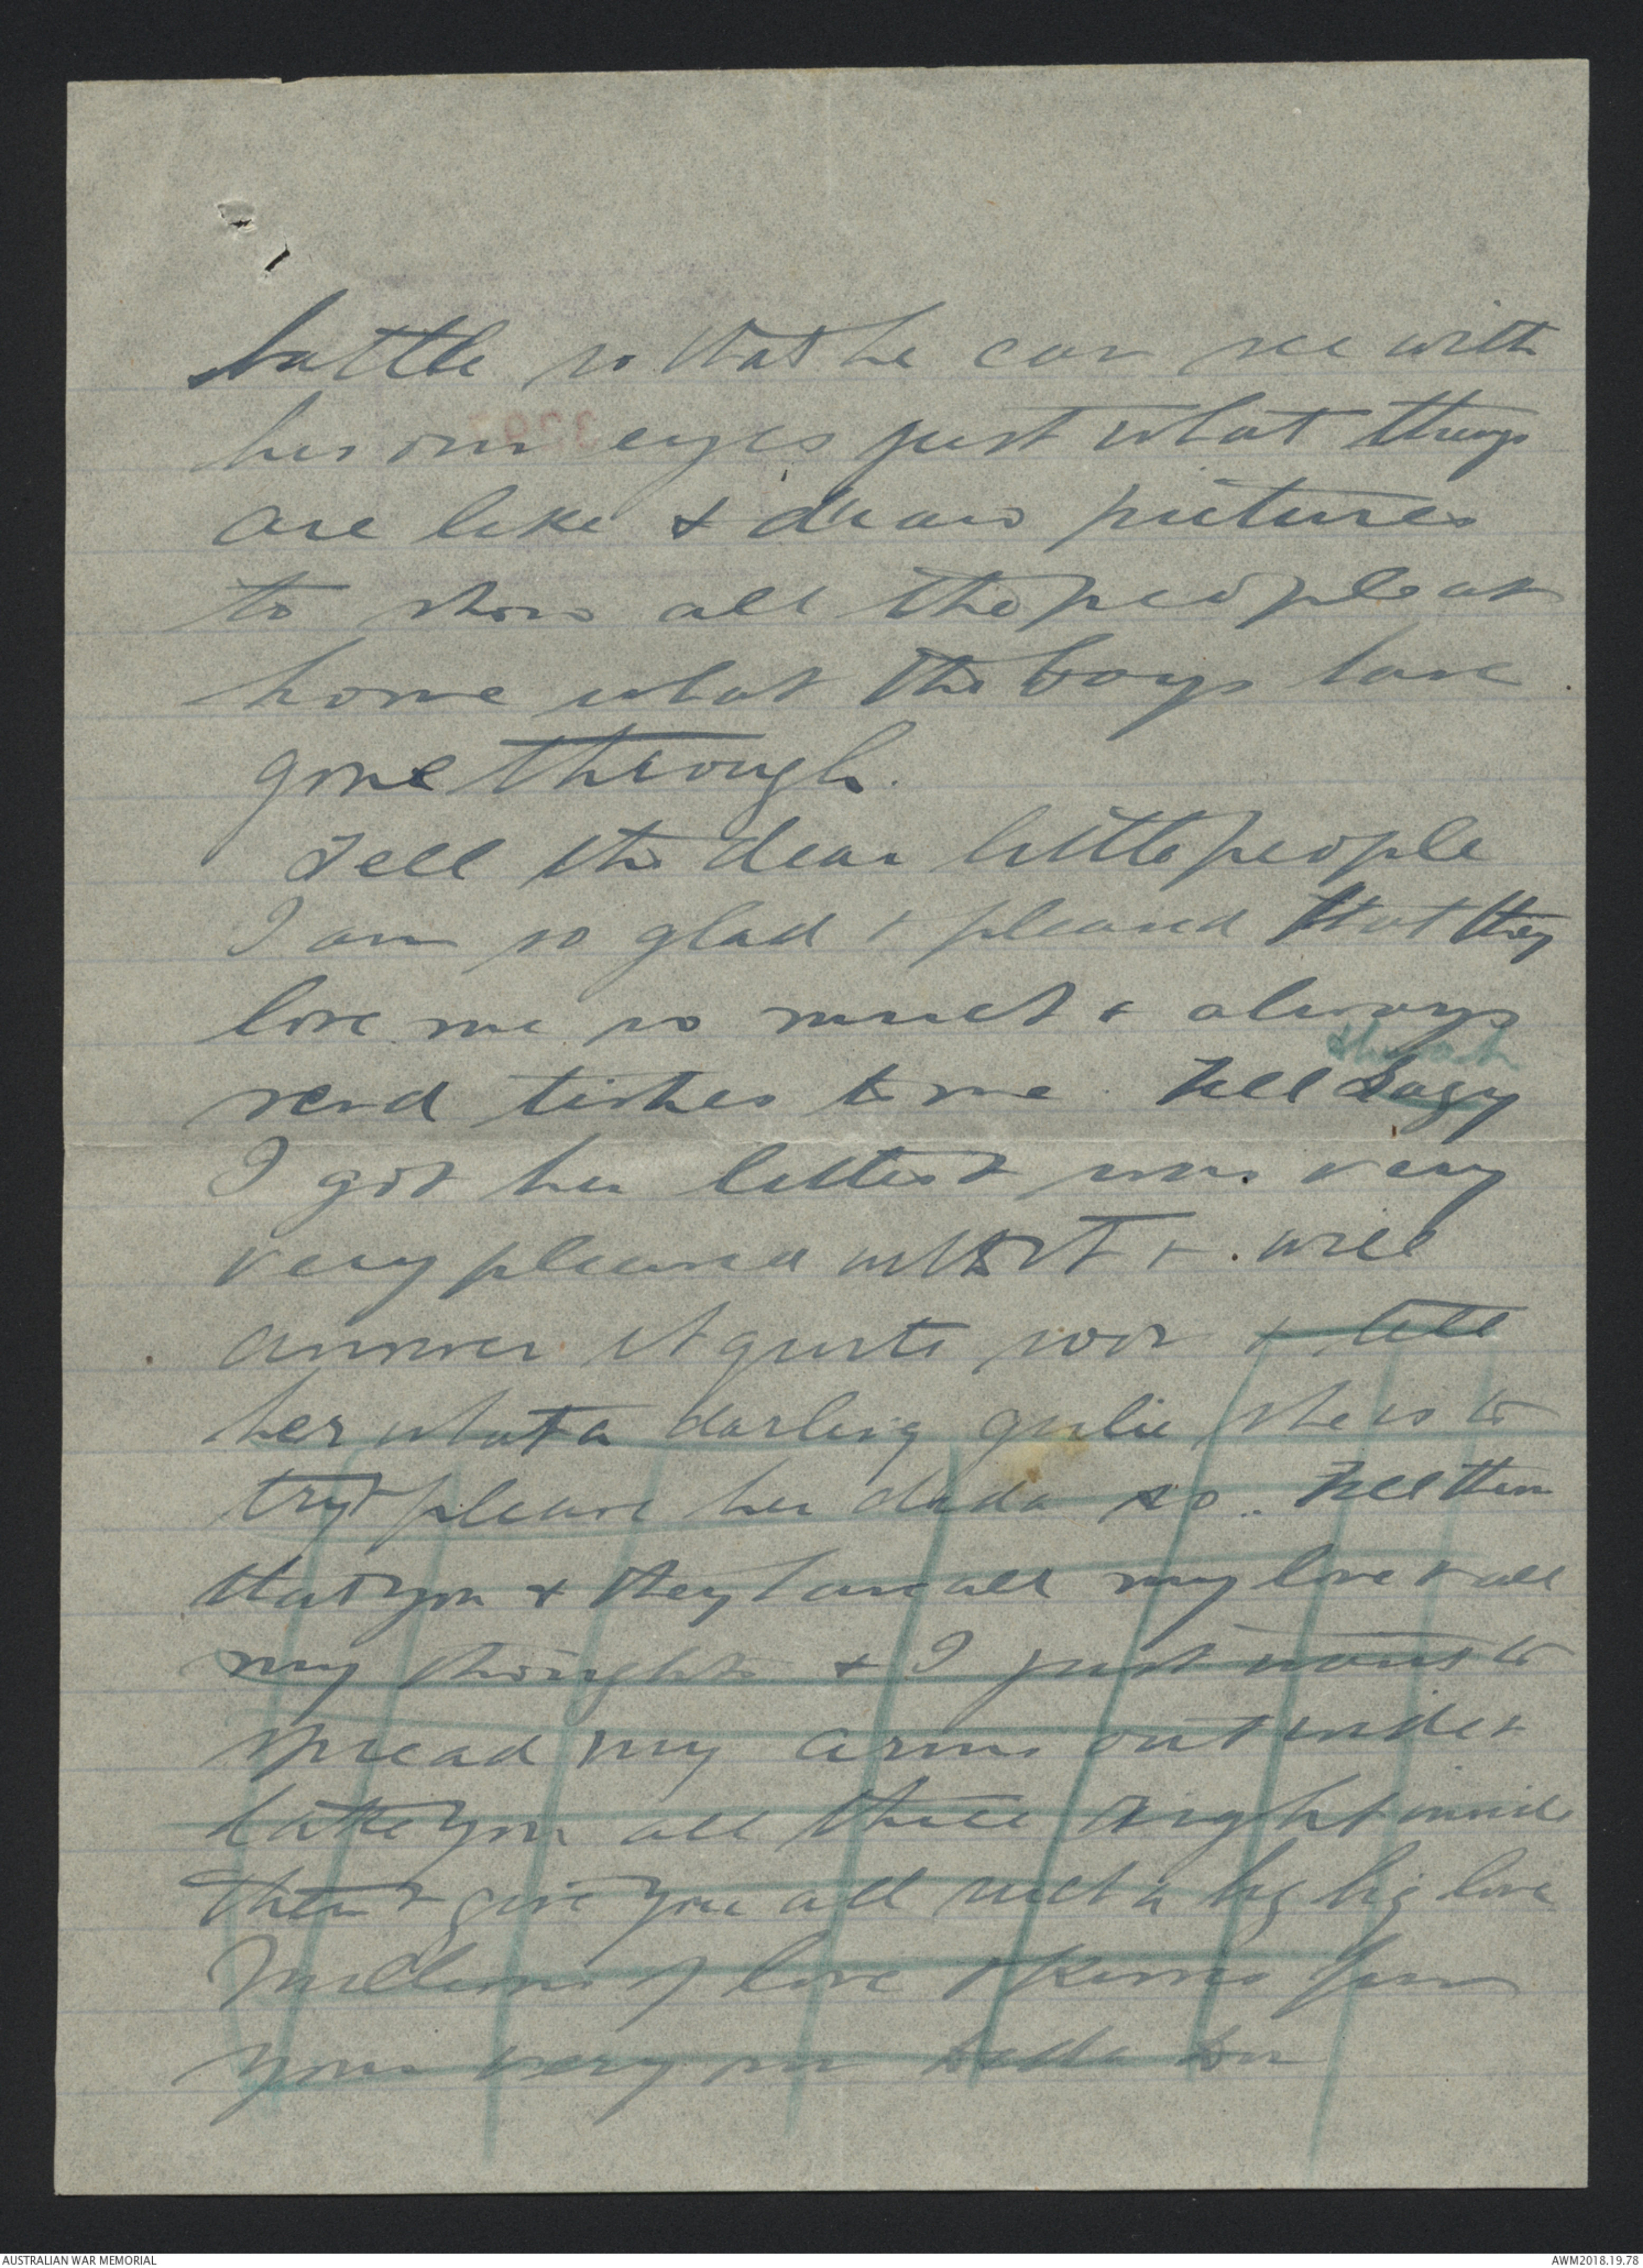 battle so that he can see with
his own eyes just what things
are like & draw pictures
to show all the people at
home what the boys have
gone through.
Tell the dear little people
I am so glad & pleased that they
love me so much & always
send tishes to me. Tell
I got her letter & was very
very pleased with it & will
answer it quite soon & tell
her what a darling girlie she is to
try & please her dada so. Tell them
that you & they have all my love & all
my thoughts & I just want to
spread my arms out wide &
take you all three right inside
them & give you all such a big big love
Millions of love & kisses from
your very own
AUSTRALIAN WAR MEMORIAL
AWM2018.19.78